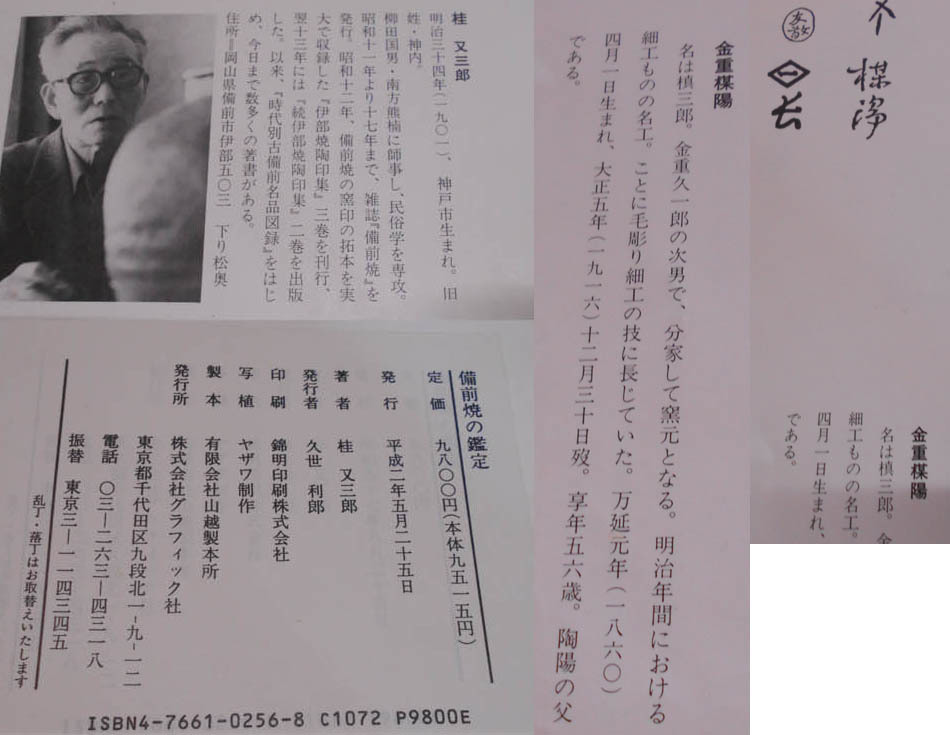 桂 又三郎
明治三十四年(一九〇一)、神戸市生まれ。旧
姓・神内。
柳田国男・南方熊楠に師事し、民俗学を専攻。
昭和十一年より十七年まで、雑誌『備前焼』を
発行、昭和十二年、備前焼の窯印の拓本を実
大で収録した『伊部焼陶印集』三巻を刊行、
翌十三年には『続伊部焼陶印集』二巻を出版
した。以来、『時代別古備前名品図録』をはじ
め、今日まで数多くの著書がある。
住所=岡山県備前市伊部五〇三 下り松奥
備前焼の鑑定
定価 九八〇〇円(本体九五一五円)
発行 平成二年五月二十五日
著者 桂 又三郎
発行者 久世 利郎
印刷 錦明印刷株式会社
写植 ヤザワ制作
製本 有限会社山越製本所
発行所 株式会社グラフィック社
東京都千代田区九段北一-九-一二
電話 〇三-二六三-四三一八
振替 東京三-一一四三四五
乱丁・落丁はお取替えいたします
ISBN4-7661-0256-8 C1072 P9800E
金重楳陽
名は槙三郎。金重久一郎の次男で、分家して窯元となる。明治年間における
細工ものの名工。ことに毛彫り細工の技に長じていた。万延元年(一八六〇)
四月一日生まれ、大正五年(一九一六)十二月三十日歿。享年五六歳。陶陽の父
である。
金重楳陽
名は槙三郎。金
細工ものの名工。
四月一日生まれ、
である。